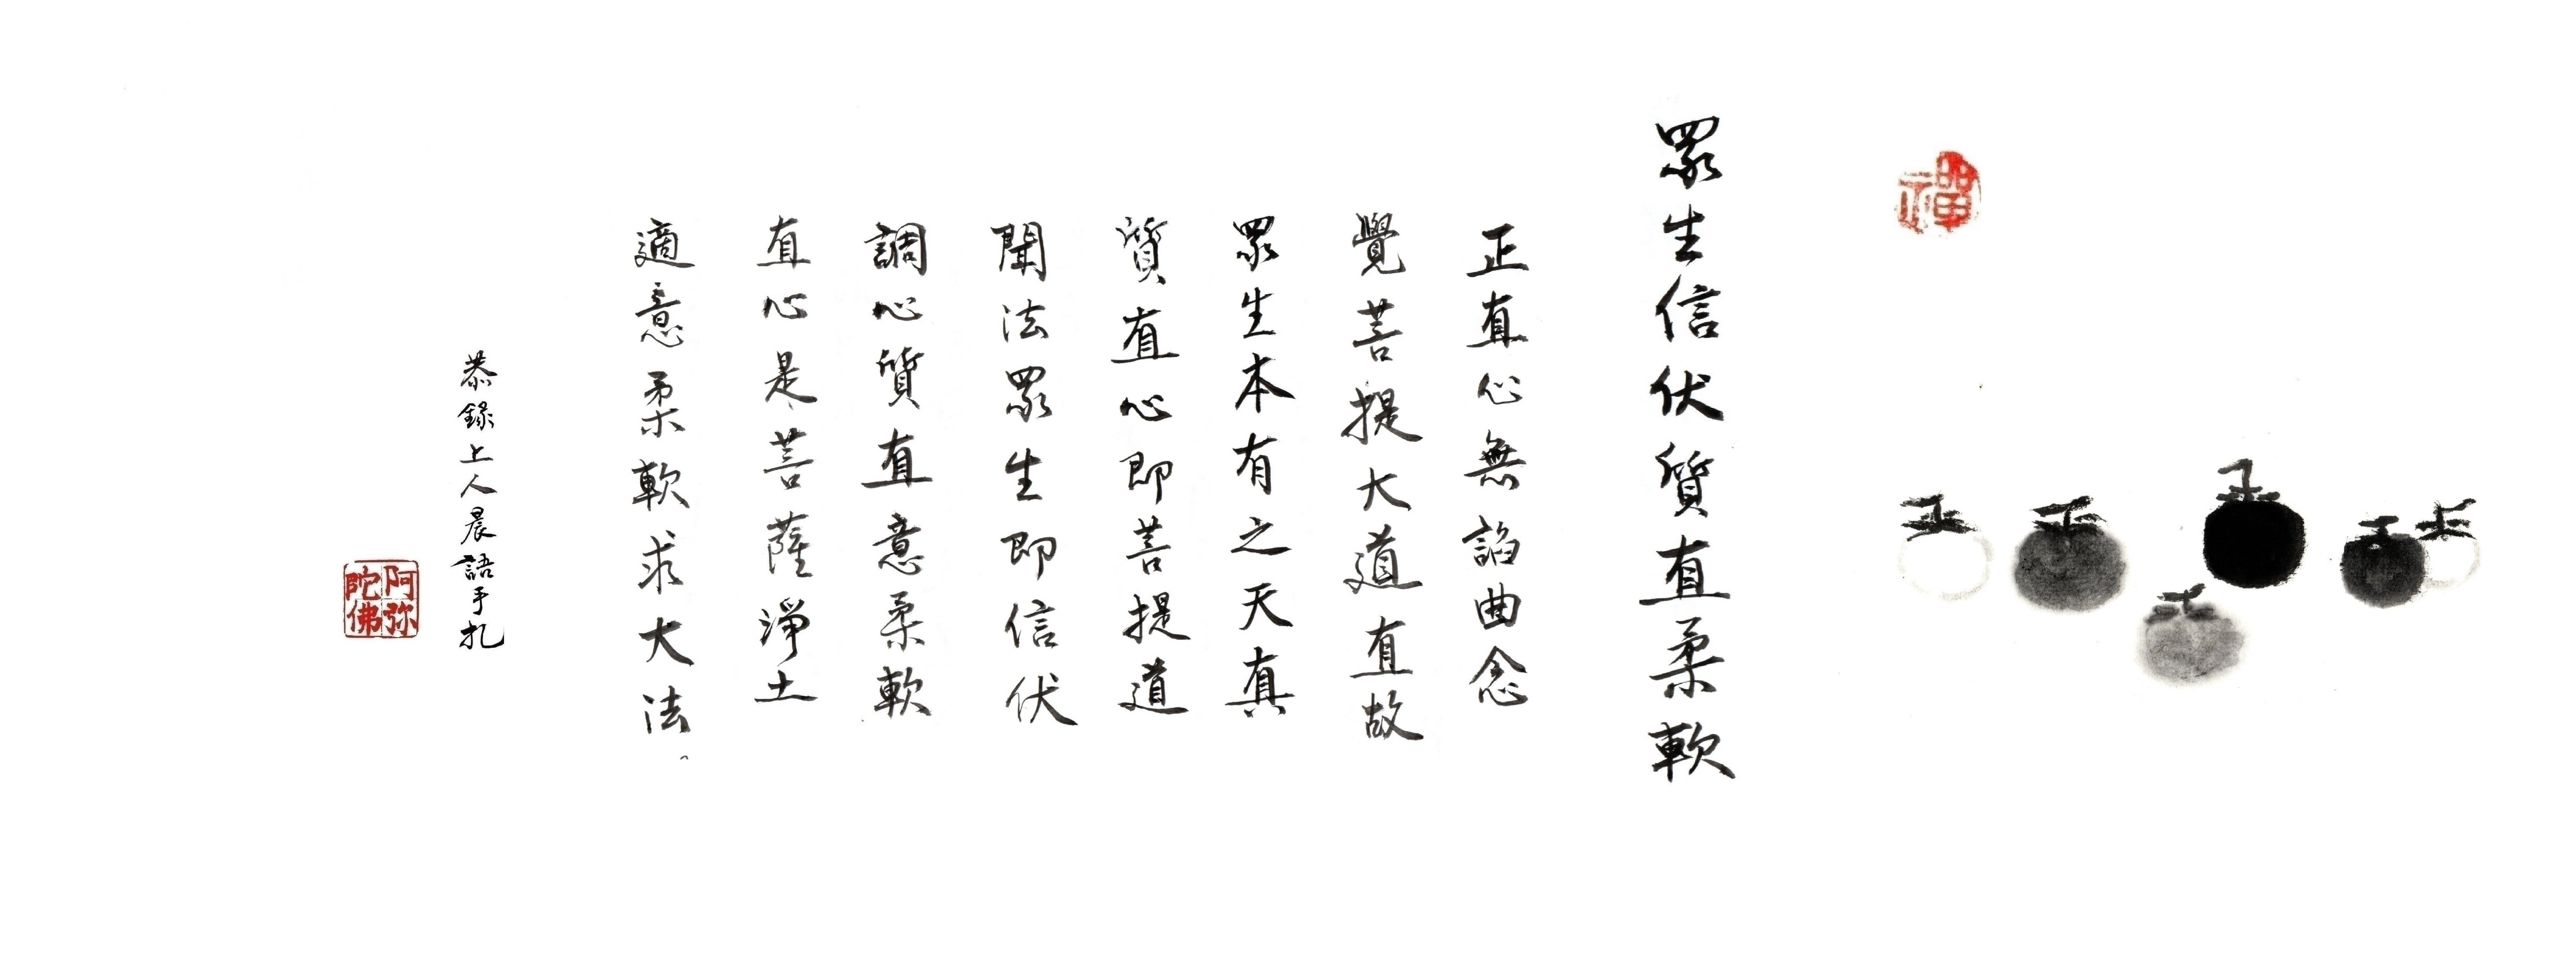 禪
眾生信伏質直柔軟
正直心無諂曲念
覺菩提大道直故
眾生本有之天真
質直心即菩提道
聞法眾生即信伏
調心質直意柔軟
直心是菩薩淨土
適意柔軟求大法。
恭錄上人晨語手扎
阿弥陀佛